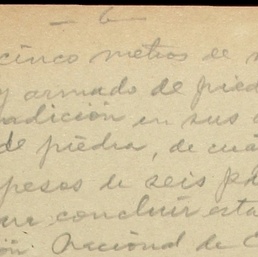 - 6 -
cinco metros de
y armado de pied
adición en sus
de piedra, de cua
pesos de seis p
concluir esta
Nacional de C